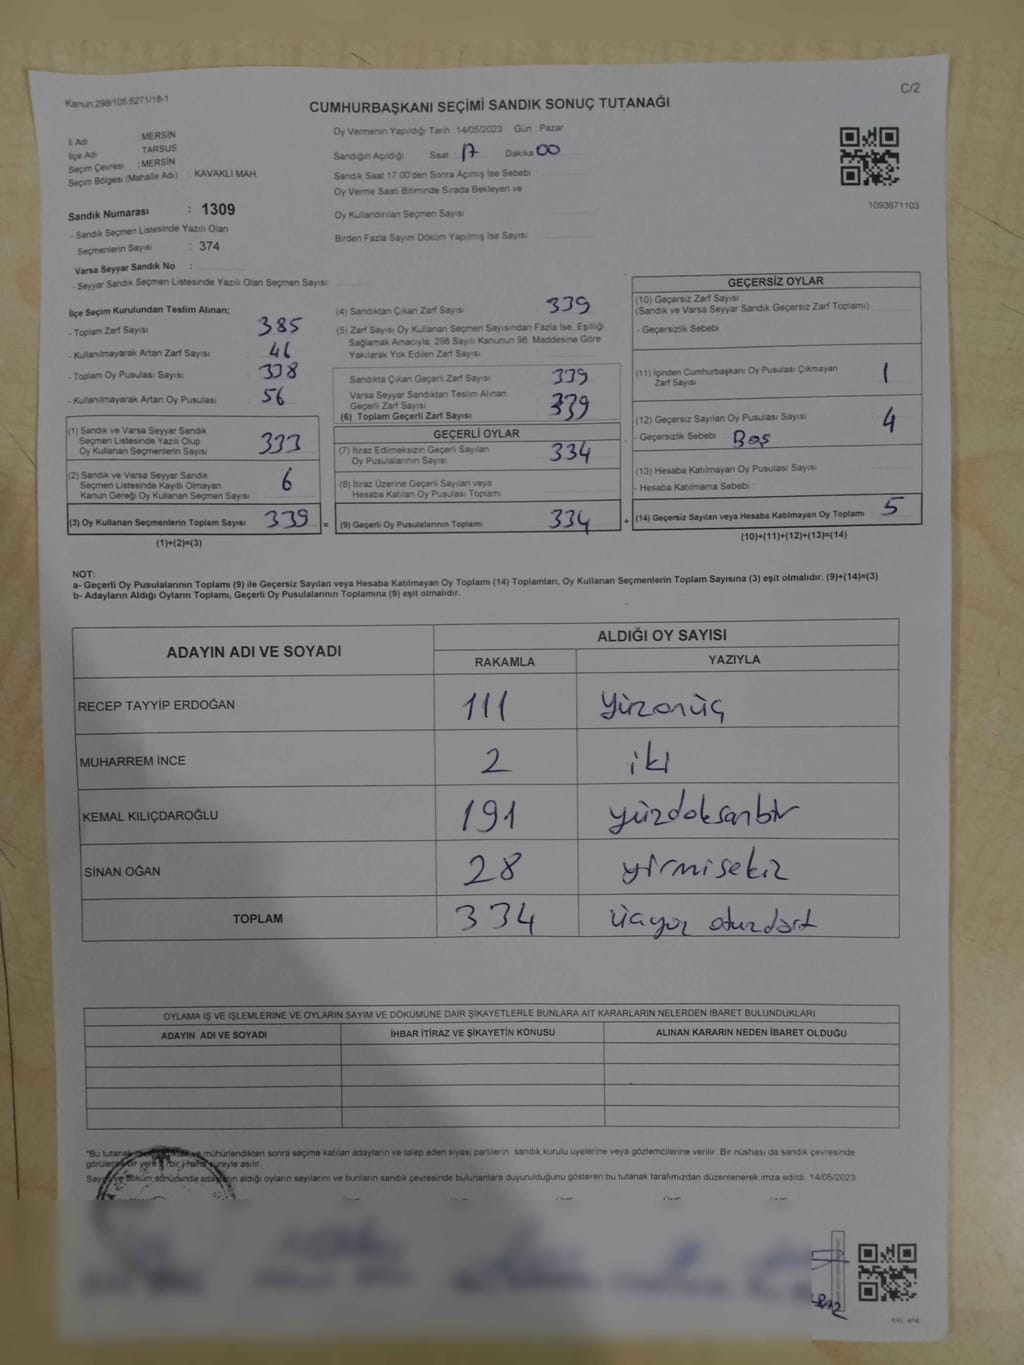 Kanun.298/105,6271/18-1
C/2
CUMHURBAŞKANI SEÇİMİ SANDIK SONUÇ TUTANAĞI
İli Adı MERSİN
İlçe Adı TARSUS
Seçim Çevresi :MERSİN
Seçim Bölgesi (Mahalle Adı) : KAVAKLI MAH.
Sandık Numarası : 1309
- Sandık Seçmen Listesinde Yazılı Olan
Seçmenlerin Sayısı : 374
Varsa Seyyar Sandık No :
- Seyyar Sandık Seçmen Listesinde Yazılı Olan Seçmen Sayısı:
Oy Vermenin Yapıldığı Tarih :14/05/2023 Gün Pazar
Sandığın Açıldığı Saat 17 Dakika 00
Sandık Saat 17:00'den Sonra Açılmış İse Sebebi
Oy Verme Saati Bitiminde Sırada Bekleyen ve
Oy Kullandırılan Seçmen Sayısı
Birden Fazla Sayım Döküm Yapılmış İse Sayısı
1093671103
İlçe Seçim Kurulundan Teslim Alınan;
- Toplam Zarf Sayısı 385
- Kullanılmayarak Artan Zarf Sayısı 46
- Toplam Oy Pusulası Sayısı 338
- Kullanılmayarak Artan Oy Pusulası 56
(1) Sandık ve Varsa Seyyar Sandık
Seçmen Listesinde Yazılı Olup
Oy Kullanan Seçmenlerin Sayısı 333
(2) Sandık ve Varsa Seyyar Sandık
Seçmen Listesinde Kayıtlı Olmayan
Kanun Gereği Oy Kullanan Seçmen Sayısı 6
(3) Oy Kullanan Seçmenlerin Toplam Sayısı 339 =
(1)+(2)=(3)
(4) Sandıktan Çıkan Zarf Sayısı 339
(5) Zarf Sayısı Oy Kullanan Seçmen Sayısından Fazla İse, Eşitliği
Sağlamak Amacıyla, 298 Sayılı Kanunun 98. Maddesine Göre
Yakılarak Yok Edilen Zarf Sayısı
Sandıkta Çıkan Geçerli Zarf Sayısı 339
Varsa Seyyar Sandıktan Teslim Alınan
Geçerli Zarf Sayısı
(6) Toplam Geçerli Zarf Sayısı 339
GEÇERLİ OYLAR
(7) İtiraz Edilmeksizin Geçerli Sayılan
Oy Pusulalarının Sayısı 334
(8) İtiraz Üzerine Geçerli Sayılan veya
Hesaba Katılan Oy Pusulası Toplamı
(9) Geçerli Oy Pusulalarının Toplamı 334 +
GEÇERSİZ OYLAR
(10) Geçersiz Zarf Sayısı
(Sandık ve Varsa Seyyar Sandık Geçersiz Zarf Toplamı)
- Geçersizlik Sebebi
(11) İçinden Cumhurbaşkanı Oy Pusulası Çıkmayan
Zarf Sayısı 1
(12) Geçersiz Sayılan Oy Pusulası Sayısı 4
- Geçersizlik Sebebi : Boş
(13) Hesaba Katılmayan Oy Pusulası Sayısı
- Hesaba Katılmama Sebebi
(14) Geçersiz Sayılan veya Hesaba Katılmayan Oy Toplamı 5
(10)+(11)+(12)+(13)=(14)
NOT:
a- Geçerli Oy Pusulalarının Toplamı (9) ile Geçersiz Sayılan veya Hesaba Katılmayan Oy Toplamı (14) Toplamları, Oy Kullanan Seçmenlerin Toplam Sayısına (3) eşit olmalıdır. (9)+(14)=(3)
b- Adayların Aldığı Oyların Toplamı, Geçerli Oy Pusulalarının Toplamına (9) eşit olmalıdır.
ADAYIN ADI VE SOYADI ALDIĞI OY SAYISI
RAKAMLA YAZIYLA
RECEP TAYYİP ERDOĞAN 111 yüzonüç
MUHARREM İNCE 2 iki
KEMAL KILIÇDAROĞLU 191 yüzdoksanbir
SİNAN OĞAN 28 yirmisekiz
TOPLAM 334 üçyüz otuzdört
OYLAMA İŞ VE İŞLEMLERİNE VE OYLARIN SAYIM VE DÖKÜMÜNE DAİR ŞİKAYETLERLE BUNLARA AİT KARARLARIN NELERDEN İBARET BULUNDUKLARI
ADAYIN ADI VE SOYADI İHBAR İTİRAZ VE ŞİKAYETİN KONUSU ALINAN KARARIN NEDEN İBARET OLDUĞU
"Bu tutanak mühürlendikten sonra seçime katılan adayların ve talep eden siyasi partilerin sandık kurulu üyelerine veya gözlemcilerine verilir. Bir nüshası da sandık çevresinde
görülecek bir yere (bir) hafta süreyle asılır.
Sayım ve döküm sonucunda adayların aldığı oyların sayılarını ve bunların sandık çevresinde bulunanlara duyurulduğunu gösteren bu tutanak tarafımızdan düzenlenerek imza edildi. 14/05/2023